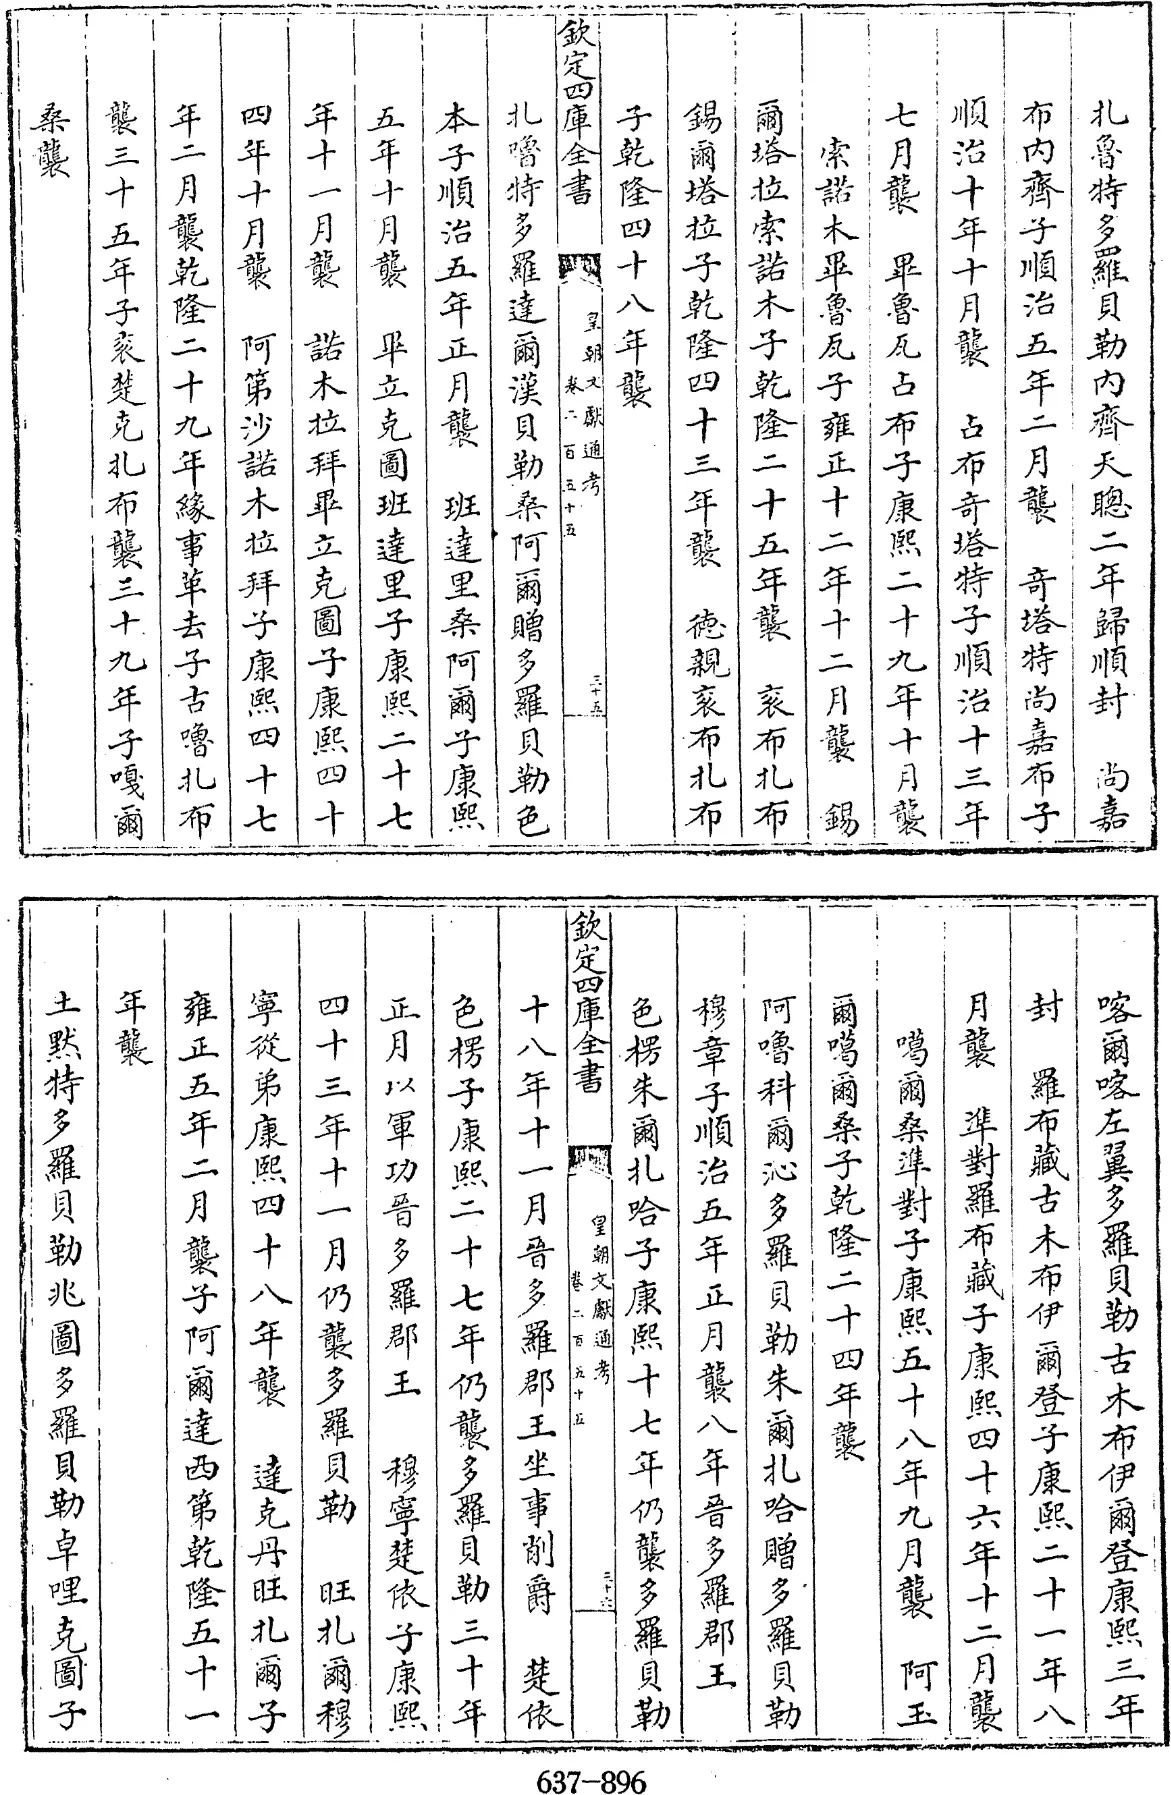 扎魯特多羅貝勒内齊天聰二年歸順封　尚嘉
布内齊子順治五年二月襲　奇塔特尚嘉布子
順治十年十月襲　占布奇塔特子順治十三年
七月襲　畢魯瓦占布子康熙二十九年十月襲
索諾木畢魯瓦子雍正十二年十二月襲　錫
爾塔拉索諾木子乾隆二十五年襲　衮布扎布
錫爾塔拉子乾隆四十三年襲　徳親衮布扎布
子乾隆四十八年襲
欽定四庫全書
皇朝文獻通考
卷二百五十五
三十五
扎嚕特多羅達爾漢貝勒桑阿爾贈多羅貝勒色
本子順治五年正月襲　班達里桑阿爾子康熙
五年十月襲　畢立克圖班達里子康熙二十七
年十一月襲　諾木拉拜畢立克圖子康熙四十
四年十月襲　阿第沙諾木拉拜子康熙四十七
年二月襲乾隆二十九年緣事革去子古嚕扎布
襲三十五年子衮楚克扎布襲三十九年子嘎爾
桑襲
喀爾喀左翼多羅貝勒古木布伊爾登康熙三年
封　羅布藏古木布伊爾登子康熙二十一年八
月襲　準對羅布藏子康熙四十六年十二月襲
噶爾桑準對子康熙五十八年九月襲　阿玉
爾噶爾桑子乾隆二十四年襲
阿嚕科爾沁多羅貝勒朱爾扎哈贈多羅貝勒
穆章子順治五年正月襲八年晉多羅郡王
色楞朱爾扎哈子康熙十七年仍襲多羅貝勒
欽定四庫全書
皇朝文獻通考
卷二百五十五
三十六
十八年十一月晉多羅郡王坐事削爵　楚依
色楞子康熙二十七年仍襲多羅貝勒三十年
正月以軍功晉多羅郡王　穆寧楚依子康熙
四十三年十一月仍襲多羅貝勒　旺扎爾穆
寧從弟康熙四十八年襲　達克丹旺扎爾子
雍正五年二月襲子阿爾達西第乾隆五十一
年襲
土默特多羅貝勒兆圖多羅貝勒卓哩克圖子
637-896